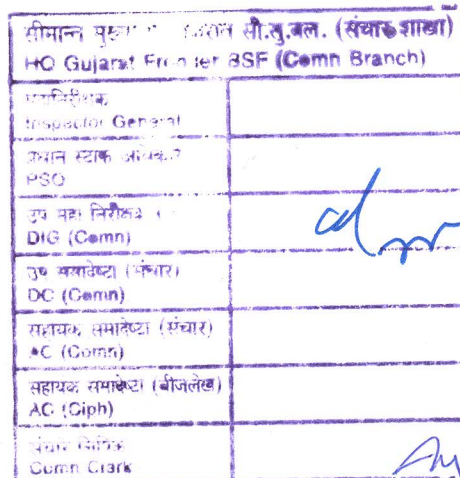 सीमान्त सी.सु.बल. (संचार शाखा)
HQ Gujarat Frontier BSF (Comn Branch)
महानिरीक्षक
Inspector General
प्रधान स्टाफ अधिकारी
PSO
उप महा निरीक्षक
DIG (Comn)
उप समादेष्टा (संचार)
DC (Comn)
सहायक समादेष्टा (संचार)
AC (Comn)
सहायक समादेष्टा (बीजलेख)
AC (Ciph)
संचार लिपिक
Comn Clark